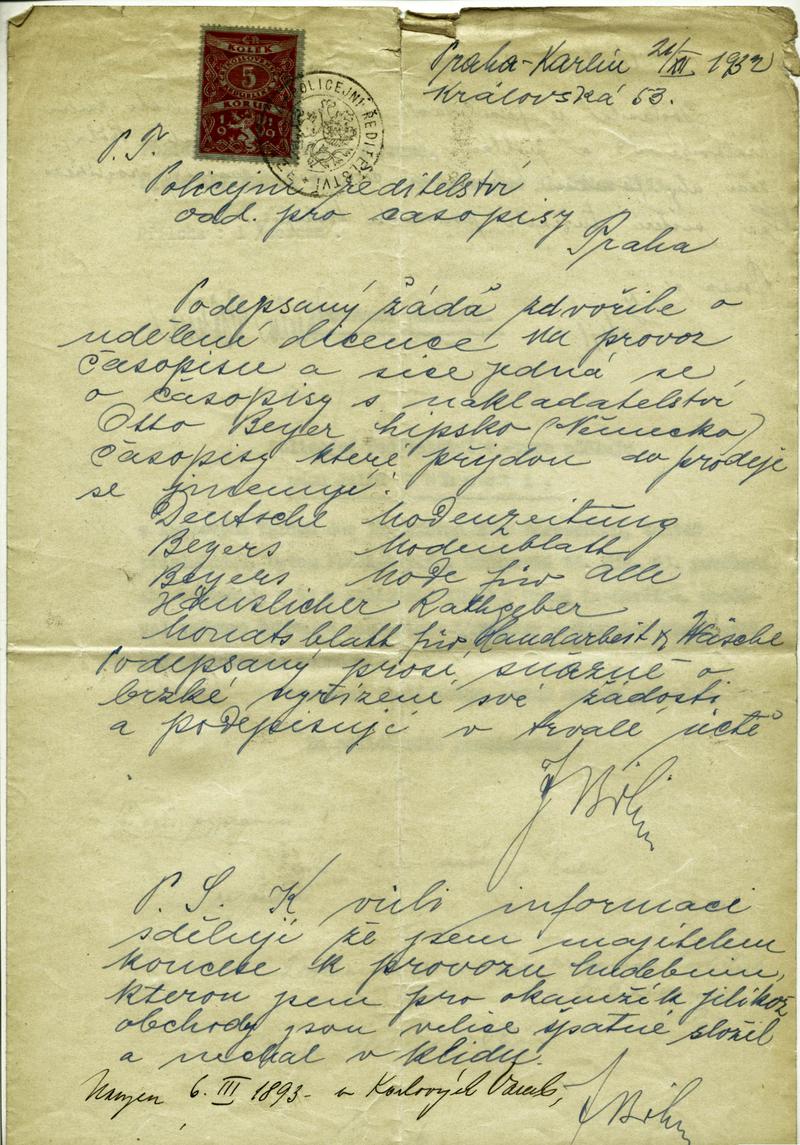 Praha-Karlín 21/XII 1932
Královská 53.
ČR
KOLEK
5
KORUN
1919
POLICEJNÍ ŘEDITELSTVÍ
P. T.
Policejní ředitelství
odd. pro časopisy
Praha
Podepsaný žádá zdvořile o
udělení licence na provoz
časopisu a sice jedná se
o časopisy s nakladatelství
Otto Beyer Lipsko (Německo)
časopisy které přijdou do prodeje
se jmenují:
Deutsche Modenzeitung
Beyers Modenblatt
Beyers Mode für Alle
Häuslicher Rathgeber
Monatsblatt für Handarbeit & Wäsche
Podepsaný prosí snažně o
brzké vyřízení své žádosti
a podepisuji v trvalé úctě
P. S. K vůli informaci
sděluji že jsem majitelem
koncese k provozu hudebnímu,
kterou jsem pro okamžik jelikož
obchody jsou velice špatné složil
a nechal v klidu.
6. III 1893 - v Karlových Varech,